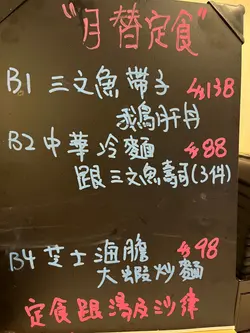 "月替定食"
B1 三文魚帶子 $138
我鳥肝丼
B2 中華冷麵 $88
跟三文魚壽司(3件)
B4 芝士海膽 $98
大蝦炒麵
定食跟湯及沙律